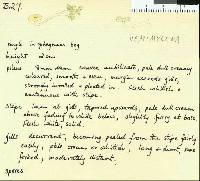 B.27.
VEN-MYCENA
single in sphagnum bog
height 2 cm
pileus 8 mm diam convex umbilicate, pale dull creamy
coloured, smooth & even, margin exceeds gills,
strongly incurved & pleated in. flesh whitish &
continuous with stipe.
stipe 1 mm at gills, tapered upwards, pale dull cream
above fading to white below, slightly furry at base,
flesh white, solid.
gills decurrent, becoming pealed from the stipe fairly
easily, pale cream or whitish, long & short, some
forked, moderately distant.
spores